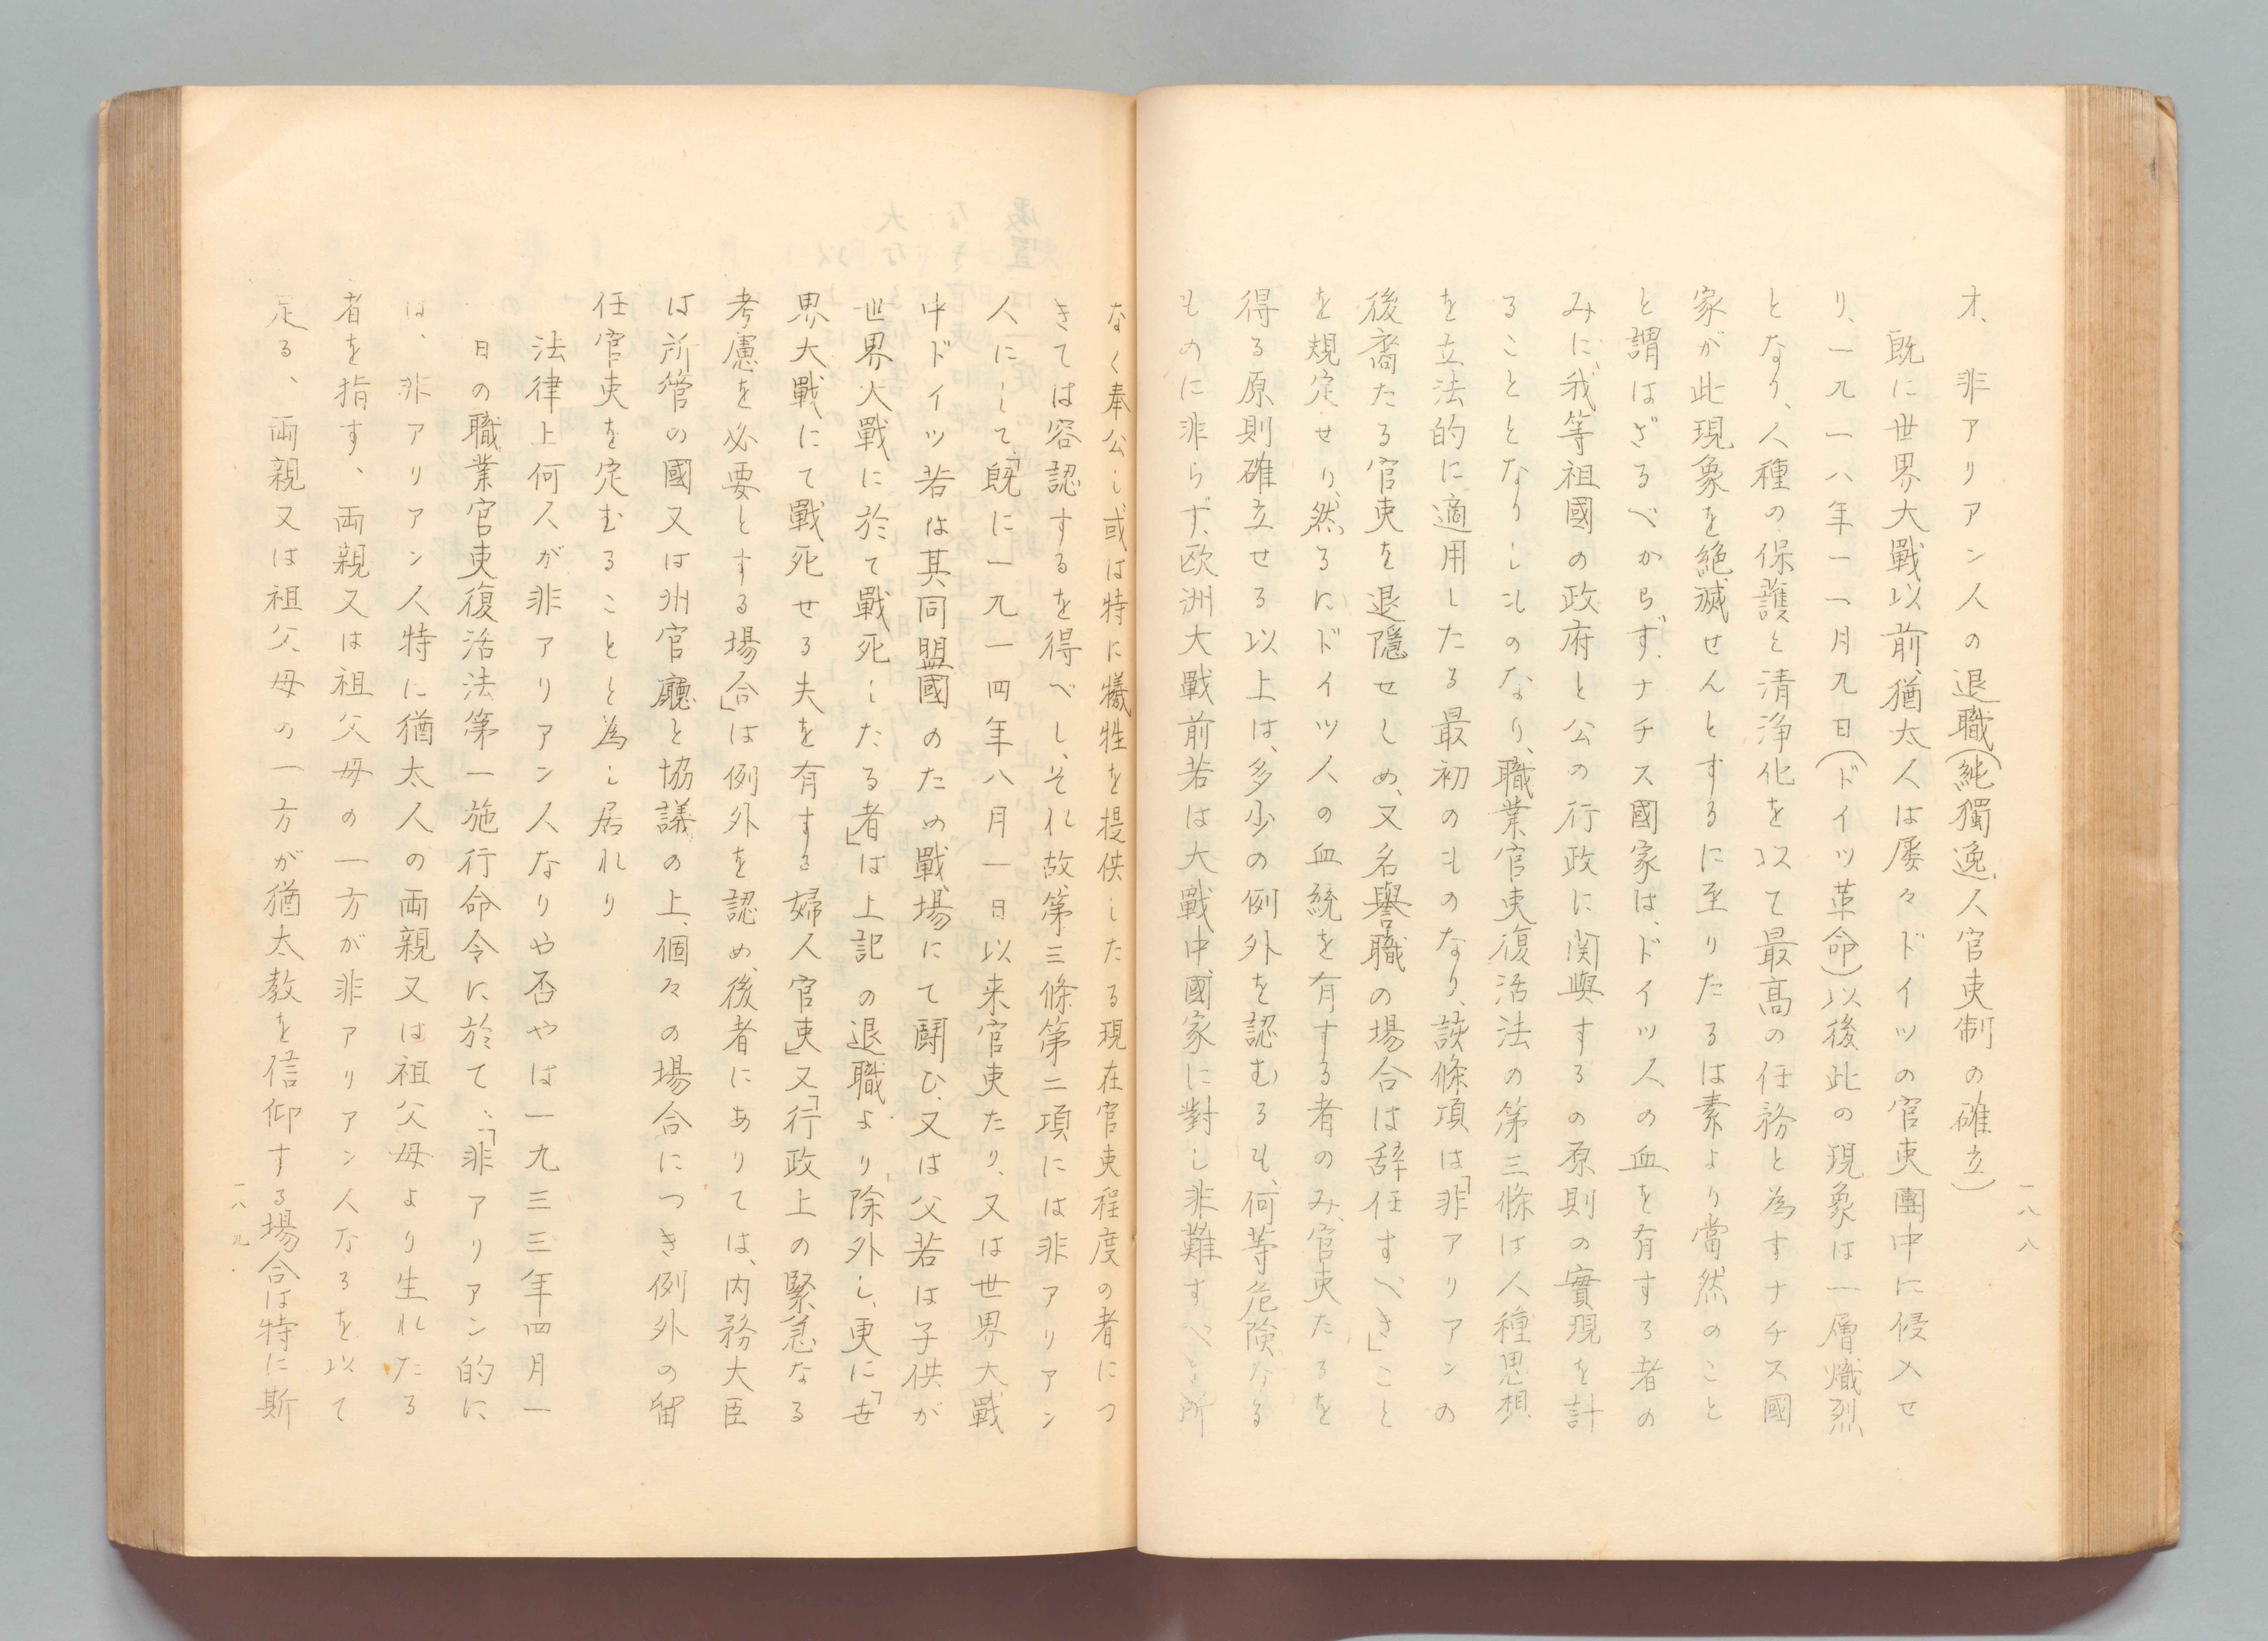 一八八
オ、非アリアン人の退職(純獨逸人官吏制の確立)
既に世界大戰以前、猶太人は屡々ドイツの官吏團中に侵入せ
り、一九一八年一一月九日(ドイツ革命)以後此の現象は一層熾烈
となり、人種の保護と清浄化を以て最高の任務と為すナチス國
家が此現象を絶滅せんとするに至りたるは素より當然のこと
と謂はざるべからず、ナチス國家は、ドイツ人の血を有する者の
みに、我等祖國の政府と公の行政に関與するの原則の實現を計
ることとなりしものなり、職業官吏復活法の第三條は人種思想
を立法的に適用したる最初のものなり、該條項は「非アリアンの
後裔たる官吏を退隠せしめ、又名譽職の場合は辞任すべき」こと
を規定せり、然るにドイツ人の血統を有する者のみ、官吏たるを
得る原則確立せる以上は、多少の例外を認むるも、何等危険なる
ものに非らず、欧洲大戰前若は大戰中國家に對し非難すべき所
なく奉公し或は特に犠牲を提供したる現在官吏程度の者につ
きては容認するを得べし、それ故、第三條第二項には非アリアン
人にして、「既に一九一四年八月一日以来官吏たり、又は世界大戰
中ドイツ若は其同盟國のため戰場にて闘ひ、又は父若は子供が
世界大戰に於て戰死したる者」は上記の退職より除外し、更に「世
界大戰にて戰死せる夫を有する婦人官吏」又「行政上の緊急なる
考慮を必要とする場合」は例外を認め、後者にありては、内務大臣
は所管の國又は州官廳と協議の上、個々の場合につき例外の留
任官吏を定むることと為し居れり
法律上何人が非アリアン人なりや否やは一九三三年四月一
日の職業官吏復活法第一施行命令に於て、「非アリアン的に
は、非アリアン人特に猶太人の両親又は祖父母より生れたる
者を指す、両親又は祖父母の一方が非アリアン人なるを以て
足る、両親又は祖父母の一方が猶太教を信仰する場合は特に斯
一八九